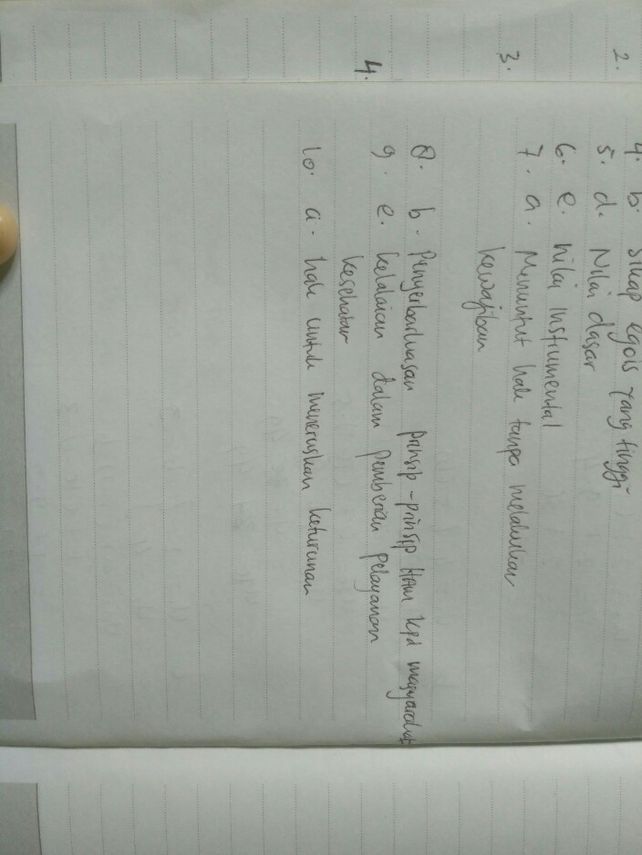 2.
4. b. Sikap egois yang tinggi
5. d. Nilai dasar
6. e. Nilai instrumental
3.
7. a. Menuntut hak tanpa melakukan
kewajiban
8. b. Penyerbarluasan prinsip-prinsip HAM kpd masyarakat
4.
9. e. kelalaian dalam pemberian pelayanan
kesehatan
10. a. hak untuk meneruskan keturunan